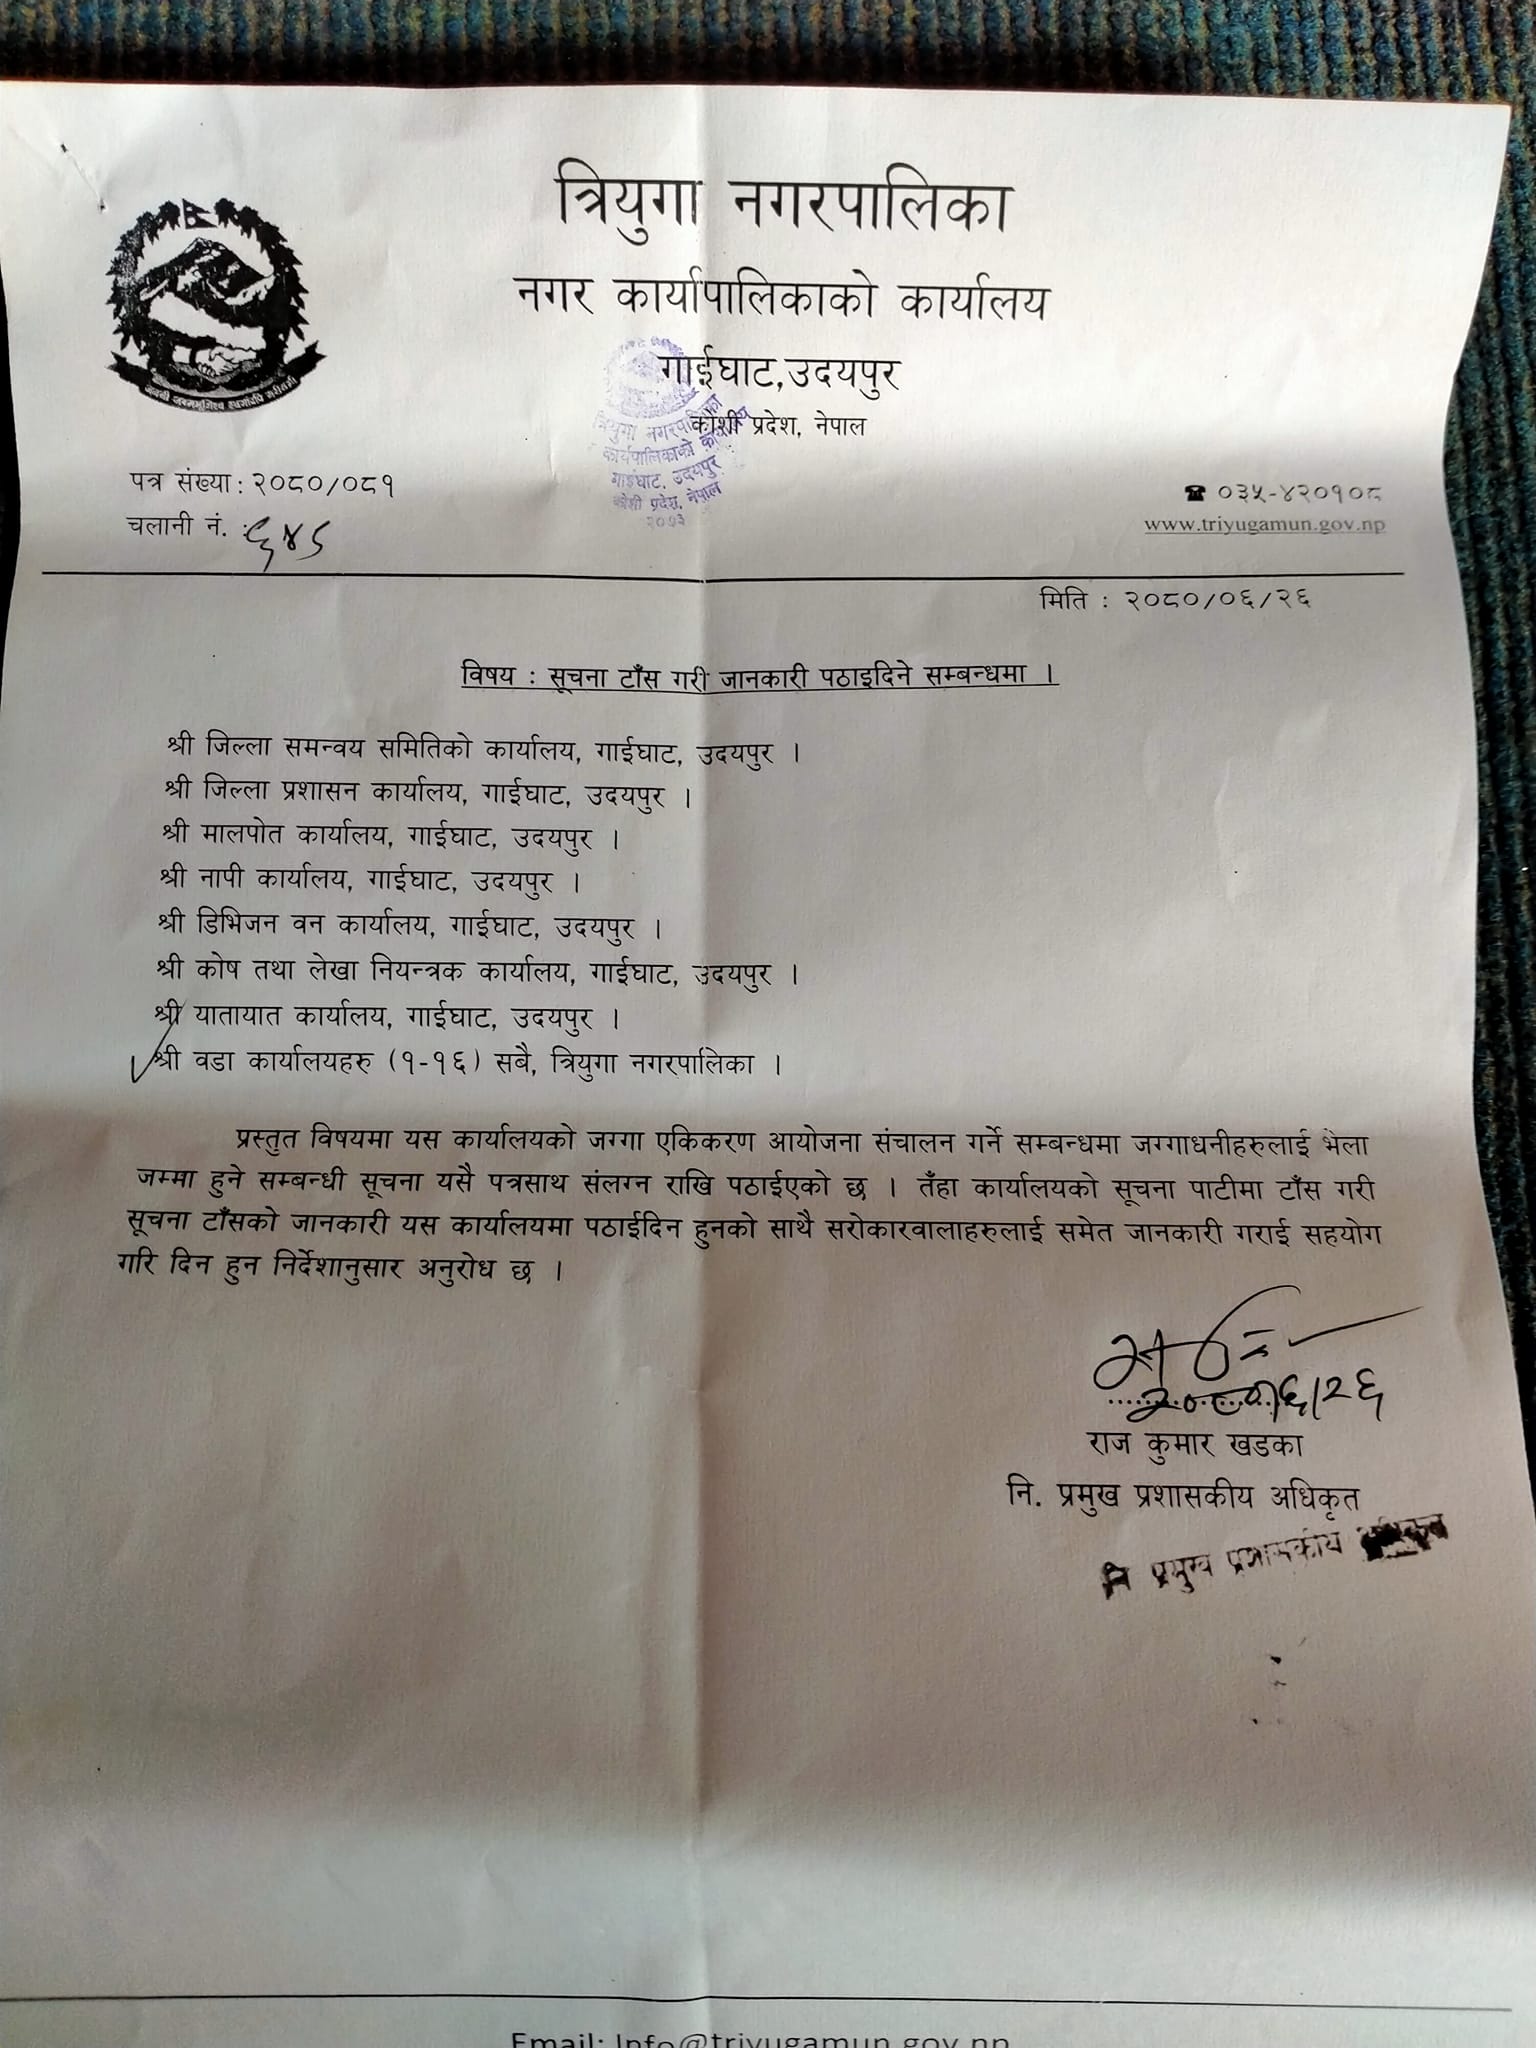 त्रियुगा नगरपालिका
नगर कार्यापालिकाको कार्यालय
गाईघाट,उदयपुर
कोशी प्रदेश, नेपाल
त्रियुगा नगरपालिका
कार्यपालिकाको कार्यालय
गाईघाट, उदयपुर
कोशी प्रदेश, नेपाल
२०७३
जननी जन्मभूमिश्च स्वर्गादपि गरीयसी
पत्र संख्या: २०८०/०८१
☎ ०३५-४२०१०८
चलानी नं. :
www.triyugamun.gov.np
मिति : २०८०/०६/२६
विषय : सूचना टाँस गरी जानकारी पठाइदिने सम्बन्धमा ।
श्री जिल्ला समन्वय समितिको कार्यालय, गाईघाट, उदयपुर ।
श्री जिल्ला प्रशासन कार्यालय, गाईघाट, उदयपुर ।
श्री मालपोत कार्यालय, गाईघाट, उदयपुर ।
श्री नापी कार्यालय, गाईघाट, उदयपुर ।
श्री डिभिजन वन कार्यालय, गाईघाट, उदयपुर ।
श्री कोष तथा लेखा नियन्त्रक कार्यालय, गाईघाट, उदयपुर ।
श्री यातायात कार्यालय, गाईघाट, उदयपुर ।
श्री वडा कार्यालयहरु (१-१६) सबै, त्रियुगा नगरपालिका ।
प्रस्तुत विषयमा यस कार्यालयको जग्गा एकिकरण आयोजना संचालन गर्ने सम्बन्धमा जग्गाधनीहरुलाई भेला
जम्मा हुने सम्बन्धी सूचना यसै पत्रसाथ संलग्न राखि पठाईएको छ । तँहा कार्यालयको सूचना पाटीमा टाँस गरी
सूचना टाँसको जानकारी यस कार्यालयमा पठाईदिन हुनको साथै सरोकारवालाहरुलाई समेत जानकारी गराई सहयोग
गरि दिन हुन निर्देशानुसार अनुरोध छ ।
२०८०/६/२६
राज कुमार खडका
नि. प्रमुख प्रशासकीय अधिकृत
नि प्रमुख प्रशासकीय अधिकृत
Email: Info@triyugamun.gov.np